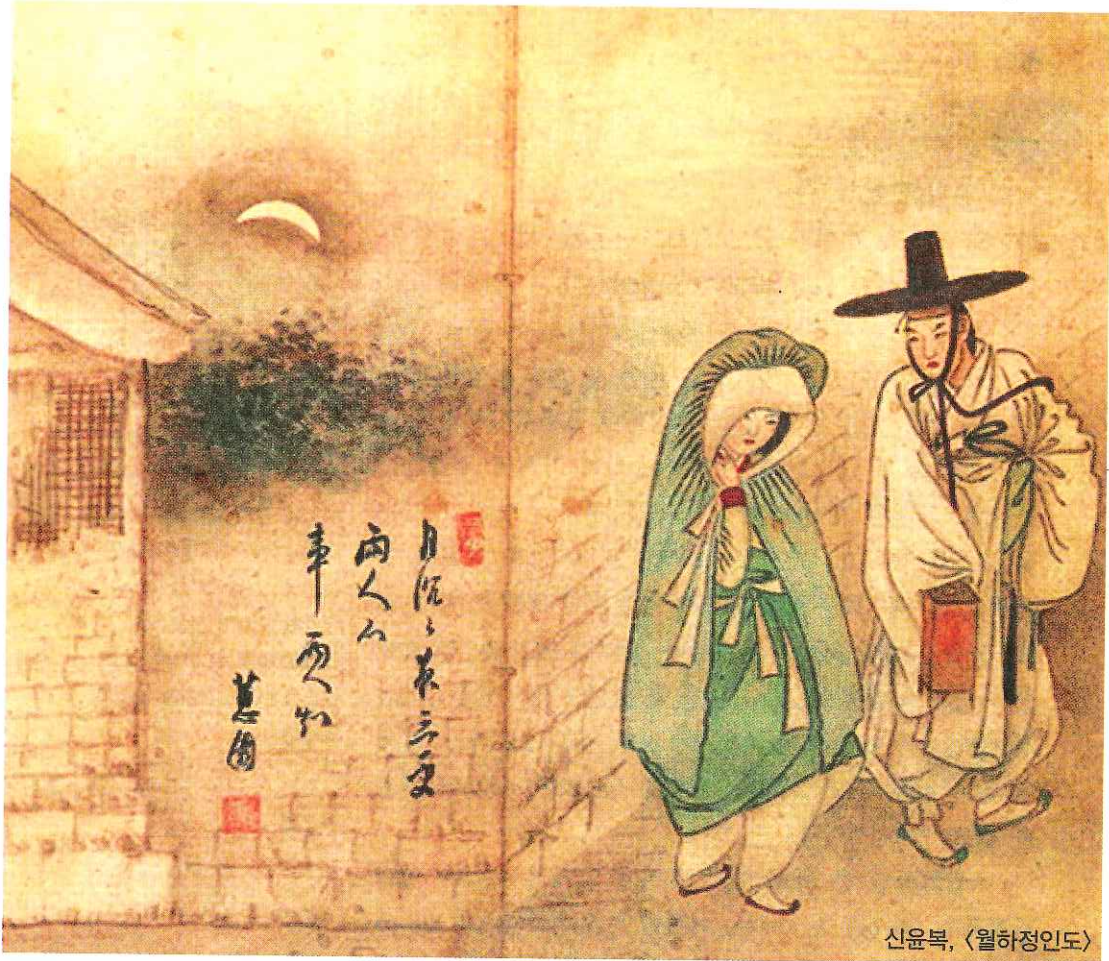 月沈〻夜三更
兩人心
事兩人知
蕙園
신윤복, 〈월하정인도〉